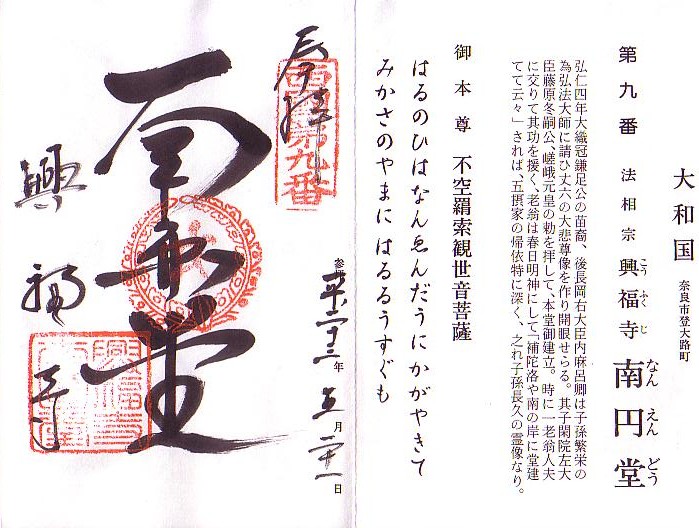 大和国 奈良市登大路町
第九番 法相宗 興福寺 南円堂
こうふくじ
なんえんどう
弘仁四年大織冠鎌足公の苗裔、後長岡右大臣内麻呂卿は子孫繁栄の
為弘法大師に請ひ丈六の大悲尊像を作り開眼せらる。其子閑院左大
臣藤原冬嗣公、嵯峨元皇の勅を拝して、本堂御建立。時に一老翁人夫
に交りて其功を援く、老翁は春日明神にして「補陀洛や南の岸に堂建
てて云々」されば、五摂家の帰依特に深く、之れ子孫長久の霊像なり。
御本尊 不空羂索観世音菩薩
はるのひはなんゑんだうにかがやきて
みかさのやまに はるるうすぐも
奉拝
西国第九番
南円堂
興福寺
平二十三年五月二十一日